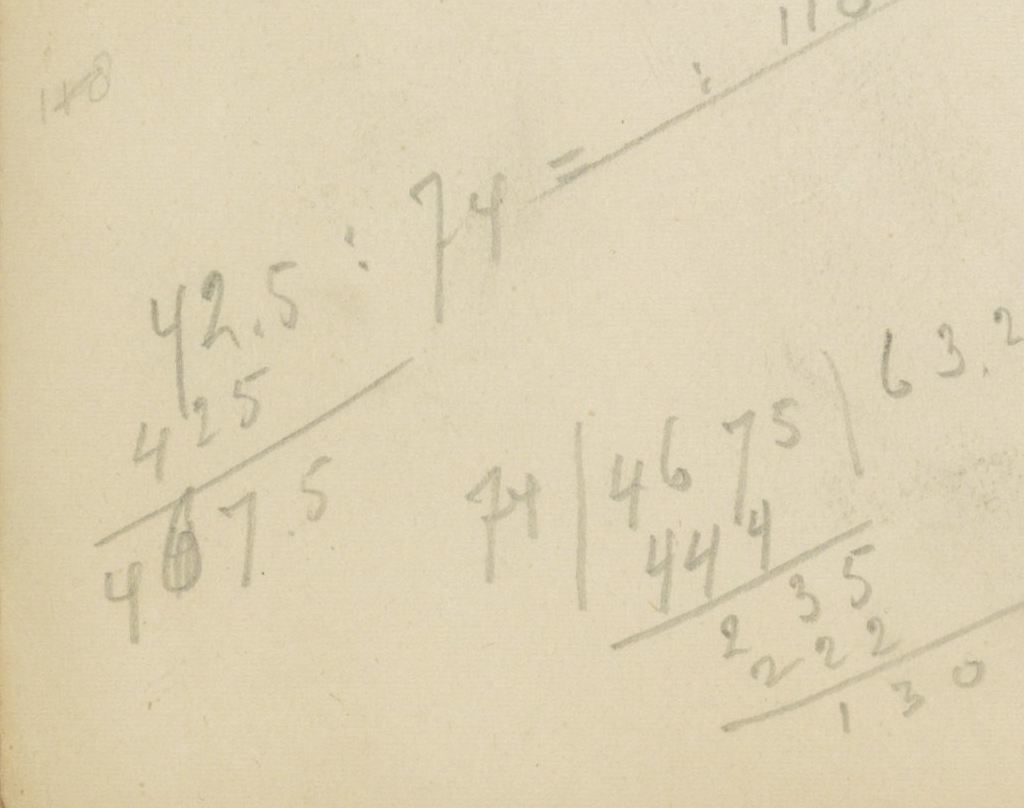 42.5 : 74 = : 110
425
467.5
74 | 4675 \ 63.2
444
235
222
130